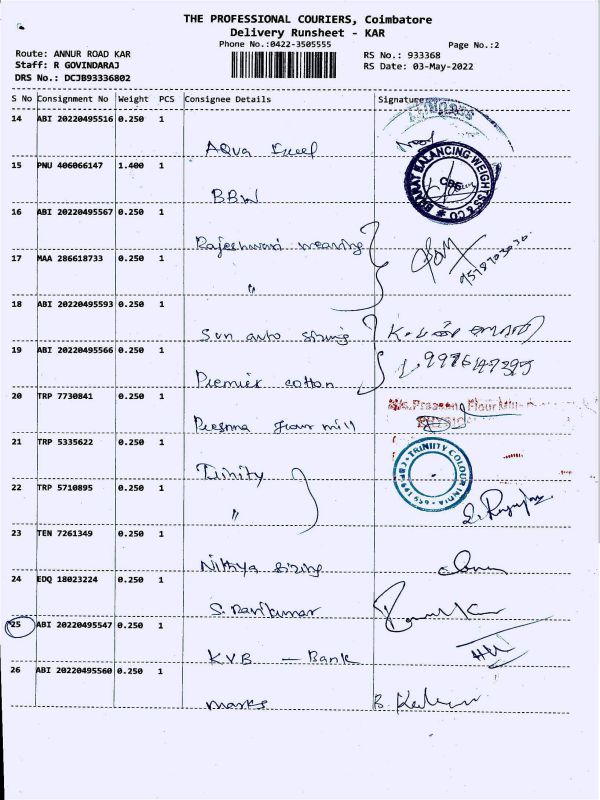 THE PROFESSIONAL COURIERS, Coimbatore
Delivery Runsheet - KAR
Phone No.:0422-3505555
Page No.:2
Route: ANNUR ROAD KAR
RS No.: 933368
Staff: R GOVINDARAJ
RS Date: 03-May-2022
DRS No.: DCJB93336802
S No Consignment No Weight PCS Consignee Details Signature
14 ABI 20220495516 0.250 1
Aqua Excel
15 PNU 406066147 1.400 1
BHARAT BALANCING WEIGHTSS & CO
CBE
BBW
16 ABI 20220495567 0.250 1
Rajeshwari weaving
9578703030
17 MAA 286618733 0.250 1
"
18 ABI 20220495593 0.250 1
Sun auto
19 ABI 20220495566 0.250 1
Premier cotton
20 TRP 7730841 0.250 1
Flour Mill
flour mill
21 TRP 5335622 0.250 1
TRINIITY COLOUR INDIA
Trinity
22 TRP 5710895 0.250 1
"
23 TEN 7261349 0.250 1
Nithya sizing
24 EDQ 18023224 0.250 1
S. Ravikumar
25 ABI 20220495547 0.250 1
KVB - Bank
26 ABI 20220495560 0.250 1
marks